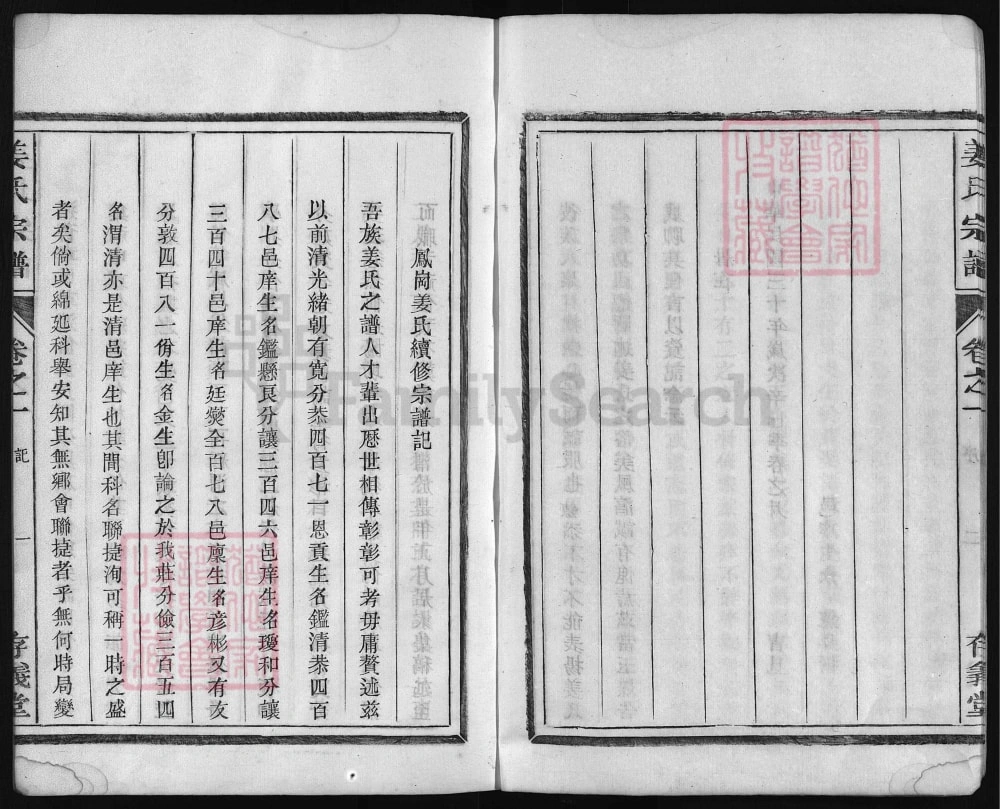 姜氏宗譜
卷之一
存義堂
鳳崗姜氏續修宗譜記
吾族姜氏之譜人才輩出歷世相傳彰彰可考毋庸贅述茲
以前清光緒朝有寬分恭四百七一恩貢生名鑑清恭四百
八七邑庠生名鑑懸艮分讓三百四六邑庠生名瓊和分讓
三百四十邑庠生名廷爕全百七八邑廩生名彥彬又有友
分敦四百八一佾生名金生卽論之於我莊分儉三百五四
名渭清亦是清邑庠生也其間科名聯捷洵可稱一時之盛
者矣倘或綿延科舉安知其無鄉會聯捷者乎無何時局變
姜氏宗譜
卷之一
記
一
存義堂
FamilySearch